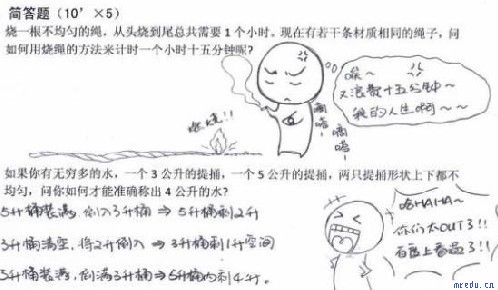 简答题（10’×5）
烧一根不均匀的绳，从头烧到尾总共需要1个小时。现在有若干条材质相同的绳子，问
如何用烧绳的方法来计时一个小时十五分钟呢？
唉～
又浪费十五分钟～
我的人生啊～～
燃烧!!
嘀嗒！
嘀嗒！
如果你有无穷多的水，一个3公升的提捅，一个5公升的提捅，两只提捅形状上下都不
均匀，问你如何才能准确称出4公升的水？
5升桶装满，倒入3升桶 ⇒ 5升桶剩2升
3升桶清空，将2升倒入 ⇒ 3升桶剩1升空间
5升桶装满，倒满3升桶 ⇒ 5升桶内剩4升。
哈HAHA～
你们太OUT了!!
百度上看品了!!
mredu.cn